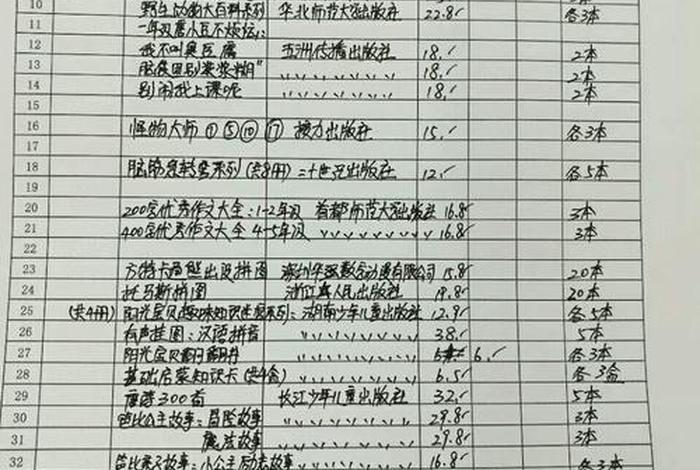 10 野生动物大百科系列 华北师范大学出版社 22.8/ 各3本
11 一年级唐小豆不烦恼:
12 我不叫臭豆腐 五洲传播出版社 18./ 2本
13 脑袋里别装浆糊" 〃〃〃〃〃〃 18./ 2本
14 别闹我上课呢 〃〃〃〃〃〃 18./ 2本
15
16 怪物大师 ① ⑤ ⑩ ⑰ 接力出版社 15./ 各3本
17
18 脑筋急转弯系列(共8册) 二十一世纪出版社 12./ 各5本
19
20 200字优秀作文大全:1-2年级 首都师范大学出版社 16.8/ 3本
21 400字优秀作文大全 4-5年级 〃〃〃〃〃〃 16.8/ 3本
22
23 方特卡通熊出没拼图 深圳华强数字动漫有限公司 15.8/ 20本
24 托马斯拼图 浙江人民出版社 19.8/ 20本
25 (共4册) 阳光宝贝趣味知识 系列:湖南少年儿童出版社 12.9/ 各5本
26 有声挂图:汉语拼音 〃〃〃〃〃〃 38./ 5本
27 阳光宝贝翻翻 〃〃〃〃〃〃 6./ 各3本
28 基础启蒙知识卡(共4盒) 〃〃〃〃〃〃 6.5/ 各3盒
29 唐诗300首 长江少年儿童出版社 32./ 5本
30 芭比公主故事:冒险故事 〃〃〃〃〃〃 29.8/ 3本
31 魔法故事 〃〃〃〃〃〃 29.8/ 3本
32 芭比 故事:小公主励志故事 〃〃〃〃〃〃 16.8/ 各3本